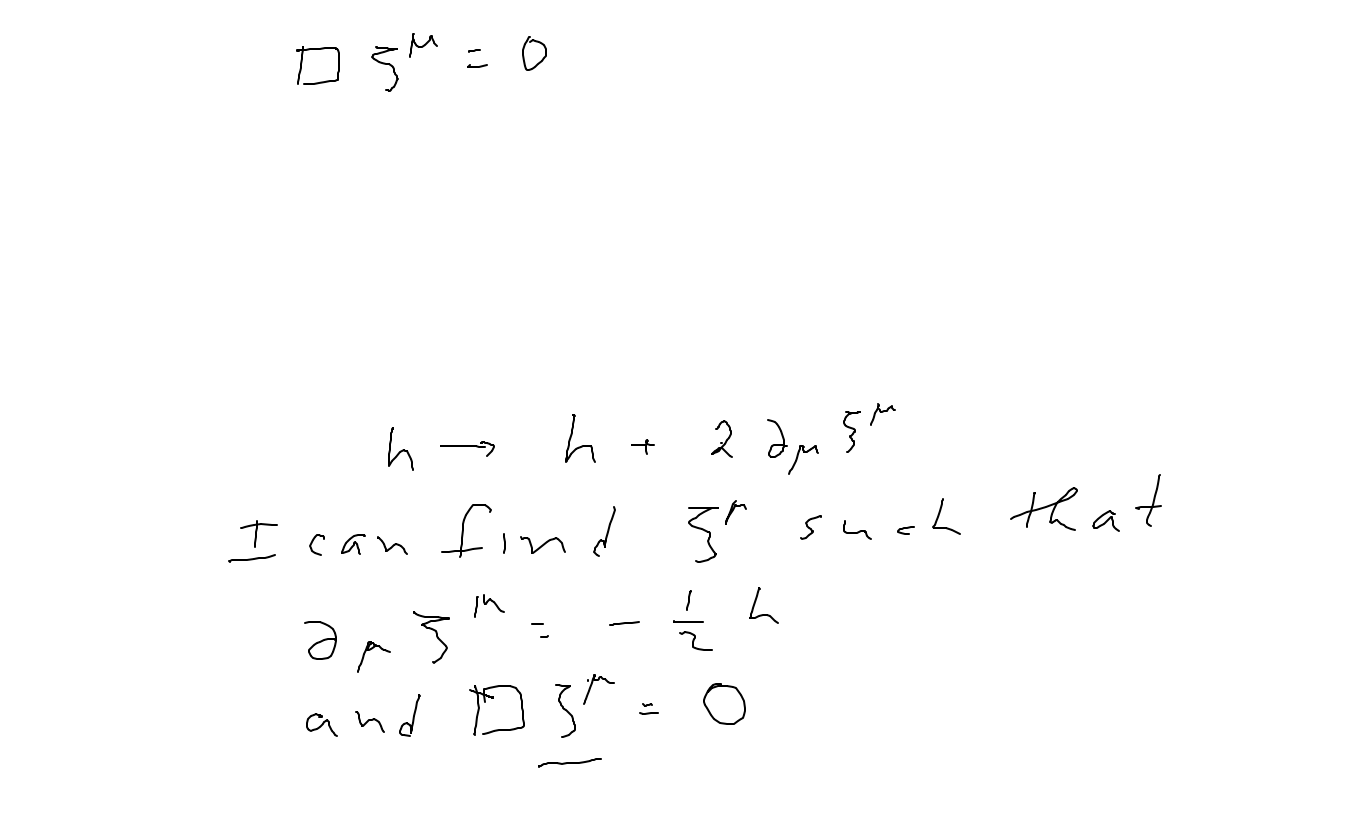 □ ξ^μ = 0
h → h + 2 ∂_μ ξ^μ
I can find ξ^μ such that
∂_μ ξ^μ = - 1/2 h
and □ ξ^μ = 0